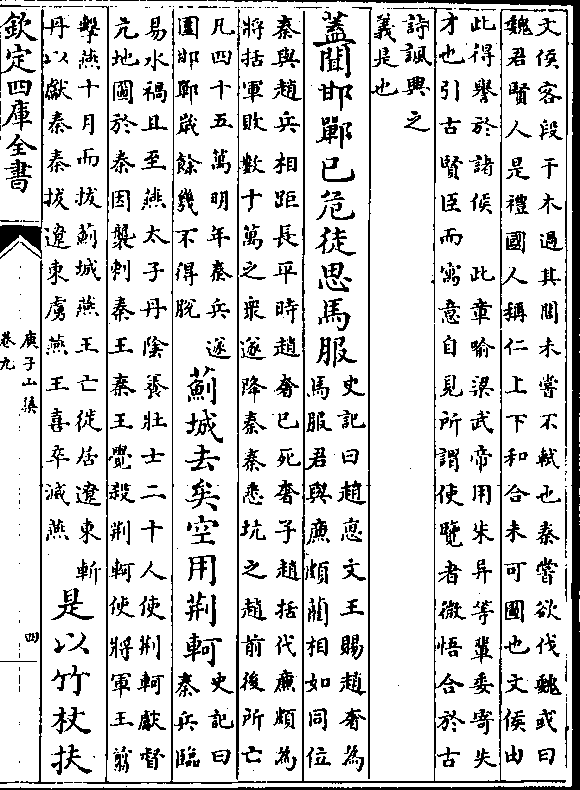 文侯客段干木過其閭未嘗不軾也秦嘗欲伐魏或曰
魏君賢人是禮國人稱仁上下和合未可圖也文侯由
此得譽於諸侯 此章喻梁武帝用朱异等輩委寄失
才也引古賢臣而寓意自見所謂使覽者微悟合於古
詩諷興之
義是也
蓋聞邯鄲已危徒思馬服
史記曰趙惠文王賜趙奢為
馬服君與廉頗藺相如同位
秦與趙兵相距長平時趙奢已死奢子趙括代廉頗為
將括軍敗數十萬之衆遂降秦秦悉坑之趙前後所亡
凡四十五萬明年秦兵遂
圍邯鄲嵗餘幾不得脱
薊城去矣空用荆軻
史記曰
秦兵臨
易水禍且至燕太子丹陰養壯士二十人使荆軻獻督
亢地圖於秦因襲刺秦王秦王覺殺荆軻使將軍王翦
擊燕十月而拔薊城燕王亡徙居遼東斬
丹以獻秦秦拔遼東虜燕王喜卒滅燕
是以竹杖扶
欽定四庫全書
庾子山集
卷九
四